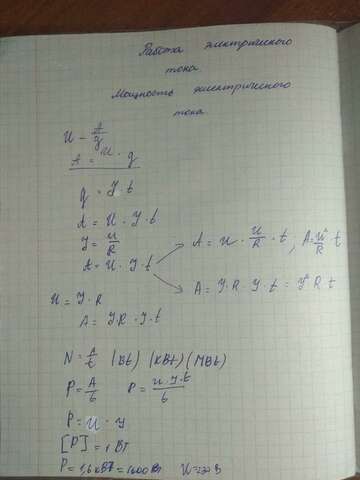 Работа электрического
тока.
Мощность электрического
тока
U - A/y
A = U · q
q = J · t
A = U · J · t
J = U/R
A = U · J · t
A = U · U/R · t, A = U²/R · t
A = J · R · J · t = J² R · t
U = J · R
A = J · R · J · t
N = A/t (Вt) (КВt) (МВt)
P = A/t P = U · J · t/t
P = U · J
[P] = 1 Вт
P = 1,6 кВт = 1600 Вт U = 220 В